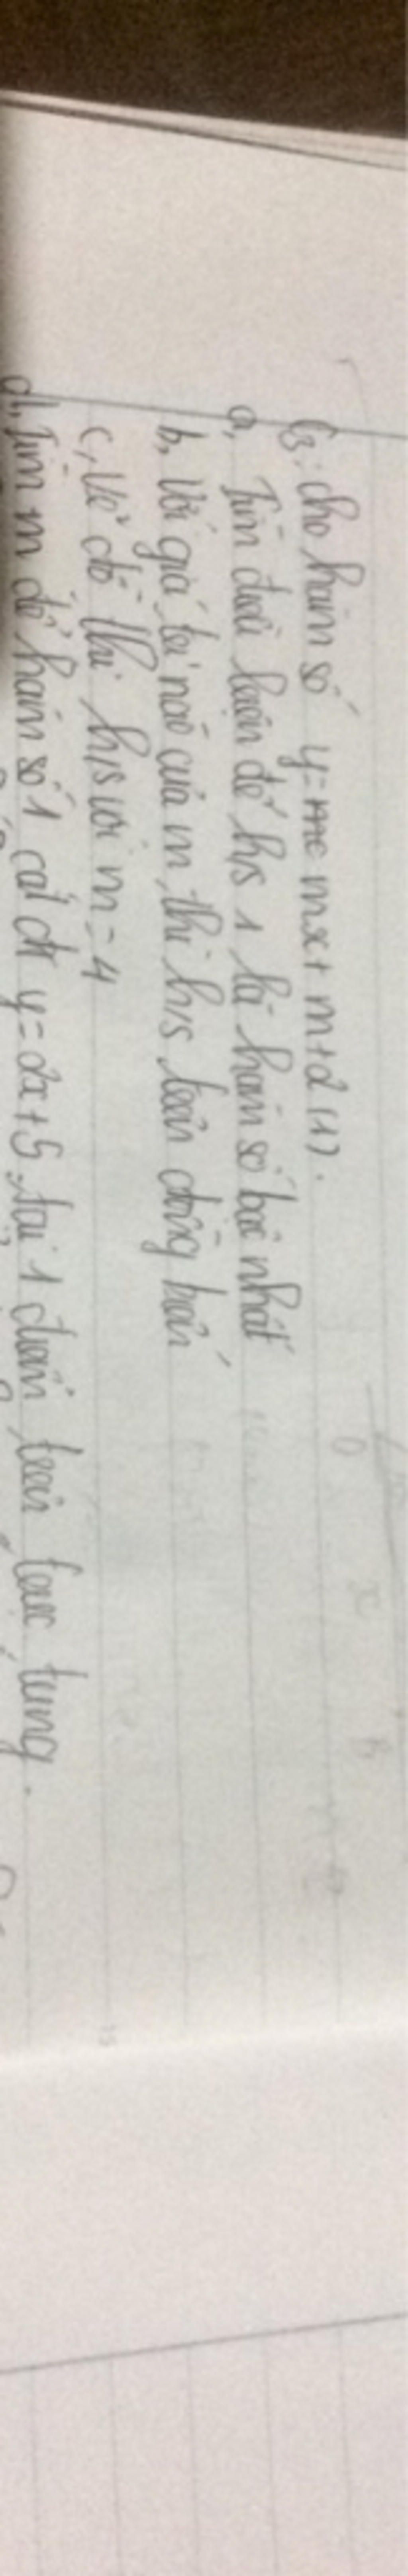 B3: cho hàm số y = mx + m + 2 (1).
a, Tìm điều kiện để h/s 1 là hàm số bậc nhất
b, Với giá trị nào của m thì h/s trên đồng biến
c, Vẽ đồ thị h/s với m = 4
d, Tìm m để hàm số 1 cắt đt y = 2x + 5 tại 1 điểm trên trục tung.